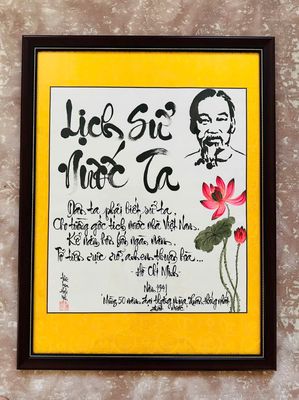 Lịch Sử
Nước Ta
Dân ta phải biết sử ta
Cho tường gốc tích nước nhà Việt Nam.
Kể năm hơn bốn ngàn năm,
Tổ tiên rực rỡ, anh em thuận hòa...
Hồ Chí Minh
Năm 1941
"Mừng 50 năm đất nước